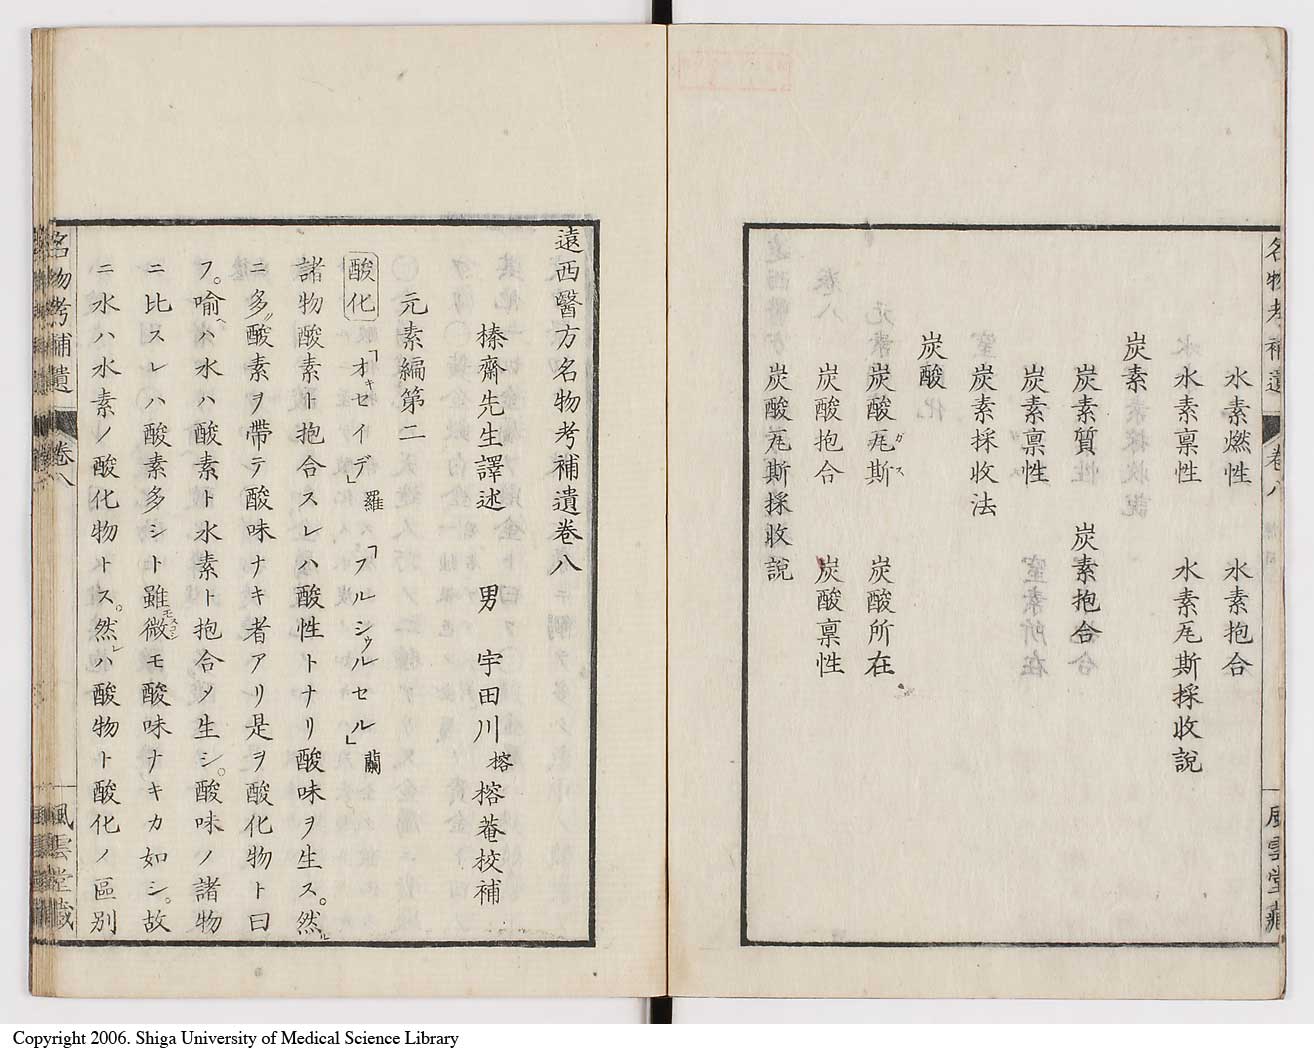 名物考補遺 卷八 風雲堂藏
水素燃性 水素抱合
水素稟性 水素瓦斯採收説
炭素
炭素質性 炭素抱合
炭素稟性
炭素採收法
炭酸
炭酸瓦斯 炭酸所在
ガス
炭酸抱合 炭酸稟性
炭酸瓦斯採收説
遠西醫方名物考補遺卷八
榛齋先生譯述 男 宇田川 榕 榕菴校補
元素編第二
酸化 「オキセイデ」羅 「フルシュウルセル」蘭
諸物酸素ト抱合スレハ酸性トナリ酸味ヲ生ス。然ル
ニ多ク酸素ヲ帶テ酸味ナキ者アリ是ヲ酸化物ト曰
フ。喻ヘハ水ハ酸素ト水素ト抱合メ生シ。酸味ノ諸物
ニ比スレハ酸素多シト雖微モ酸味ナキカ如シ。故
スコシモ
ニ水ハ水素ノ酸化物トス。然レハ酸物ト酸化ノ區別
名物考補遺 卷八 風雲堂藏
Copyright 2006. Shiga University of Medical Science Library